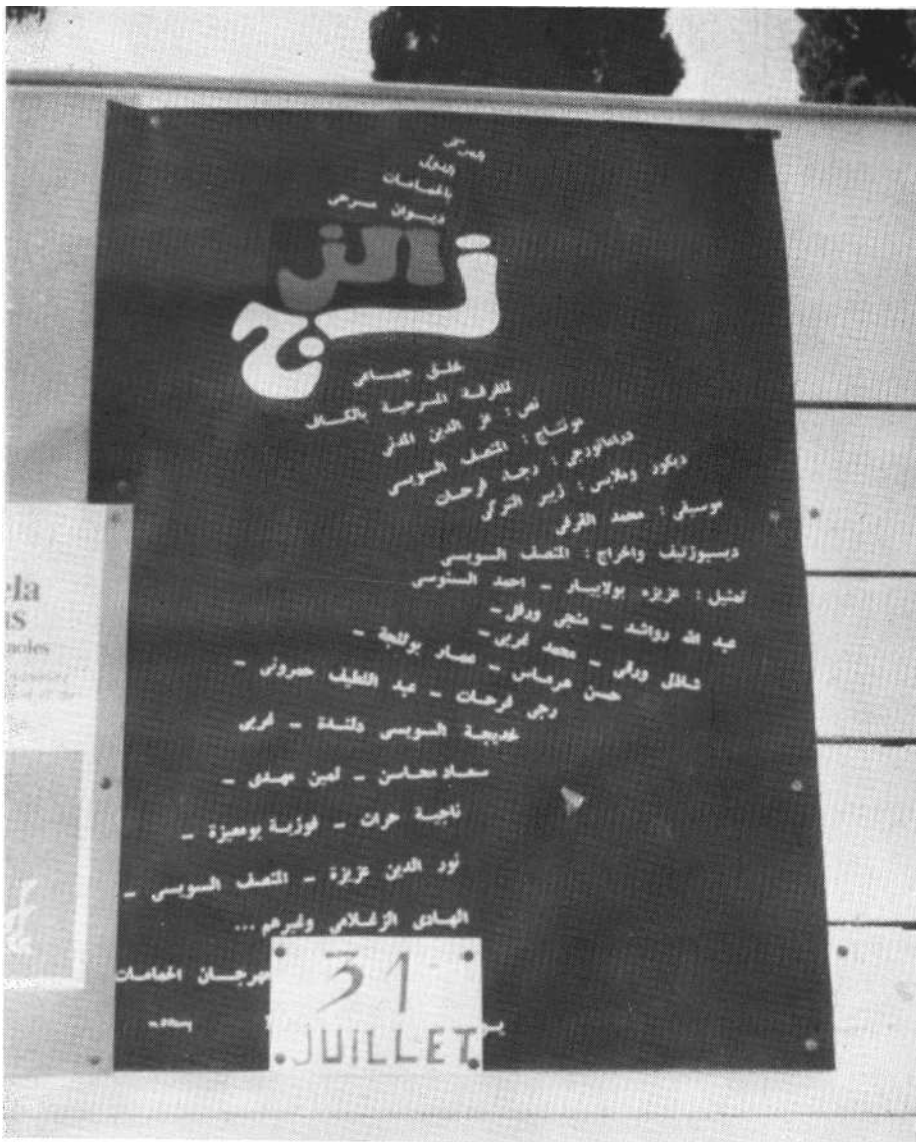 بالحمامات
ديوان مسرحي
الزنج
خلق جماعي
للفرقة المسرحية بالكاف
نص : عز الدين المدني
مونتاج : المنصف السويسي
دراماتورجي : رجاء فرحات
ديكور وملابس : زبير التركي
موسيقى : محمد القرفي
ديسبوزتيف واخراج : المنصف السويسي
تمثيل : عزيزه بولابيار - احمد السنوسي
عبد الله رواشد - منجي ورفلي -
شاذلي ورفلي - محمد غربي -
حسن هرماس - عمار بوثلجة -
رجي فرحات - عبد اللطيف حمروني -
خديجة السويسي دلندة - غربي
سعاد محاسن - لمين نهدي -
ناجية حرات - فوزية بومعيزة -
نور الدين عزيزة - المنصف السويسي -
الهادي الزغلامي وغيرهم ...
مهرجان الحمامات
31
JUILLET
ela
as
noles